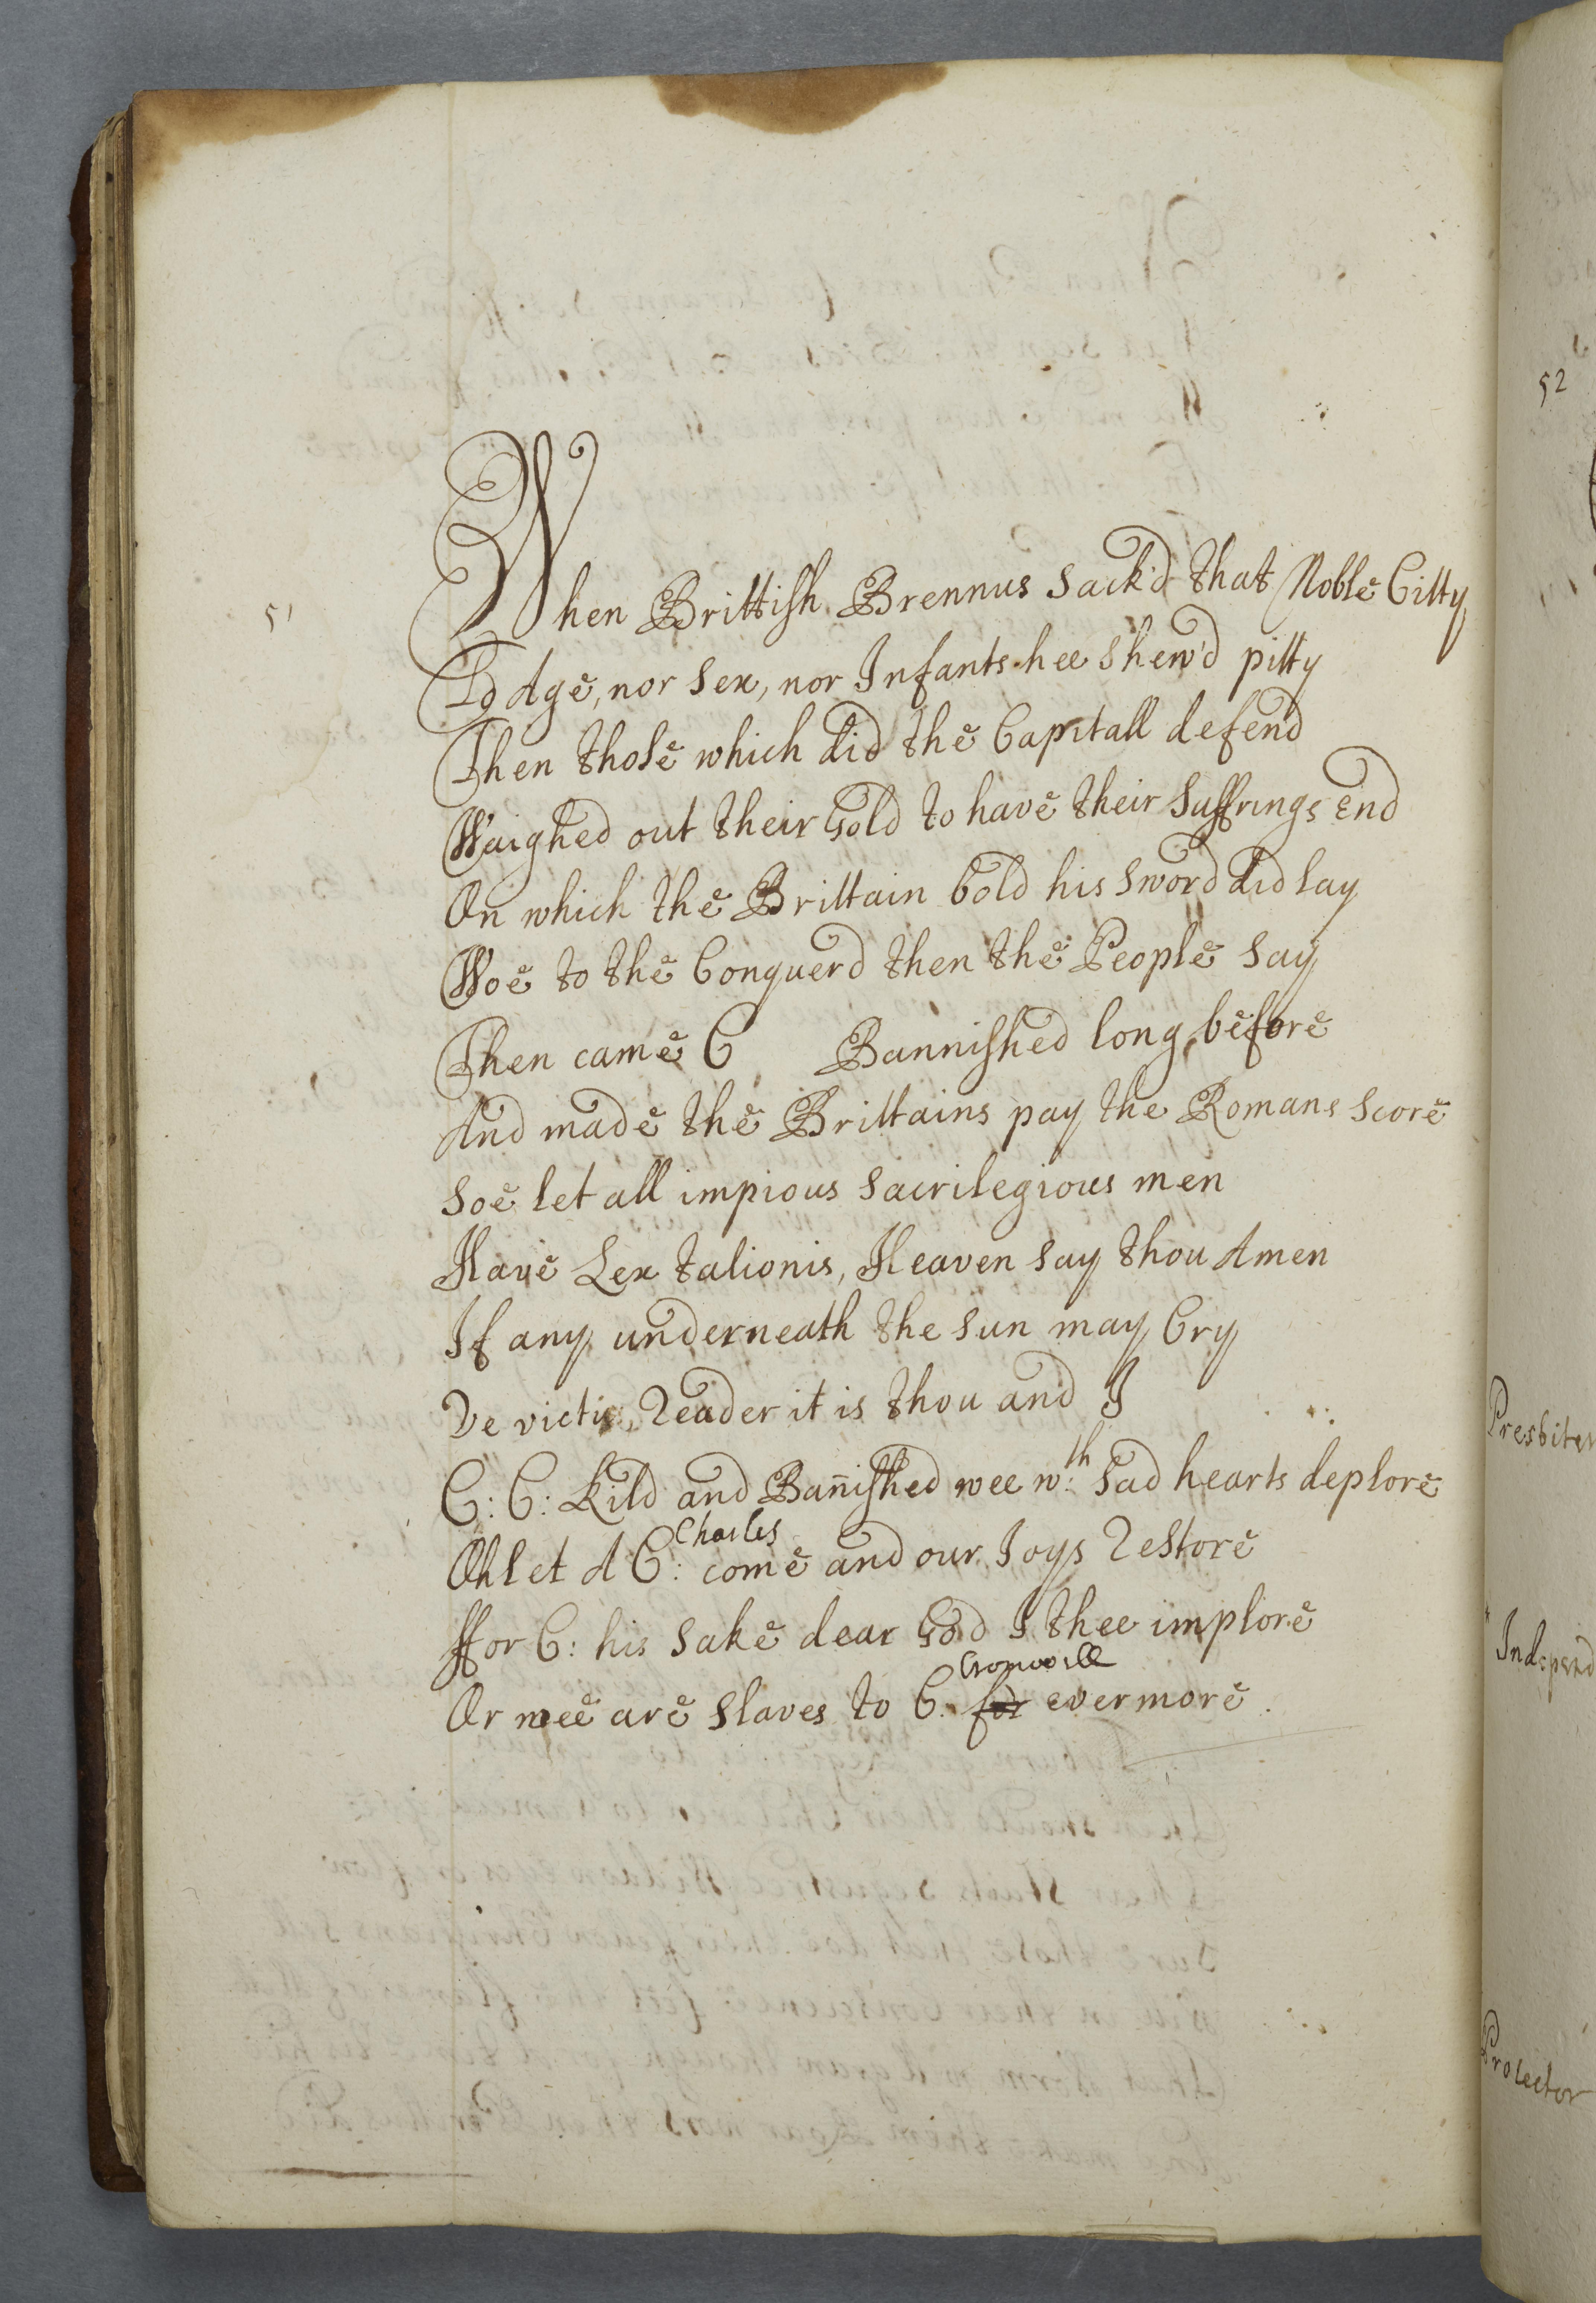 51
When Brittish Brennus Sack'd that Noble Citty
To Age, nor Sex, nor Infants hee shew'd pitty
Then those which did the Capitall defend
Waighed out their Gold to have their Suffrings End
On which the Brittain bold his Sword did lay
Woe to the Conquerd then the People Say
Then came C Bannished long before
And made the Brittains pay the Romans Score
Soe let all impious Sacrilegious men
Have Lex talionis, Heaven Say thou Amen
If any underneath the Sun may Cry
Ve victis, Reader it is thou and I
C: C: Kild and Bañished wee wth Sad hearts deplore
Charles
Oh let A C: come and our Joys Restore
ffor C: his Sake dear God I thee implore
Cromwell
Or wee are Slaves to C. for evermore.
52
Presbiter
Independ
Protector